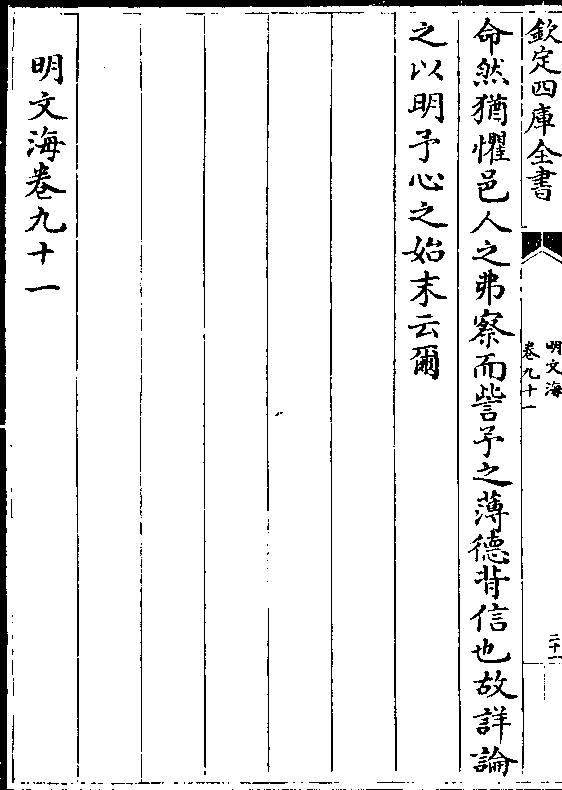 欽定四庫全書
明文海
卷九十一
二十一
命然猶懼邑人之弗察而訾予之薄德背信也故詳論
之以明予心之始末云爾
明文海卷九十一